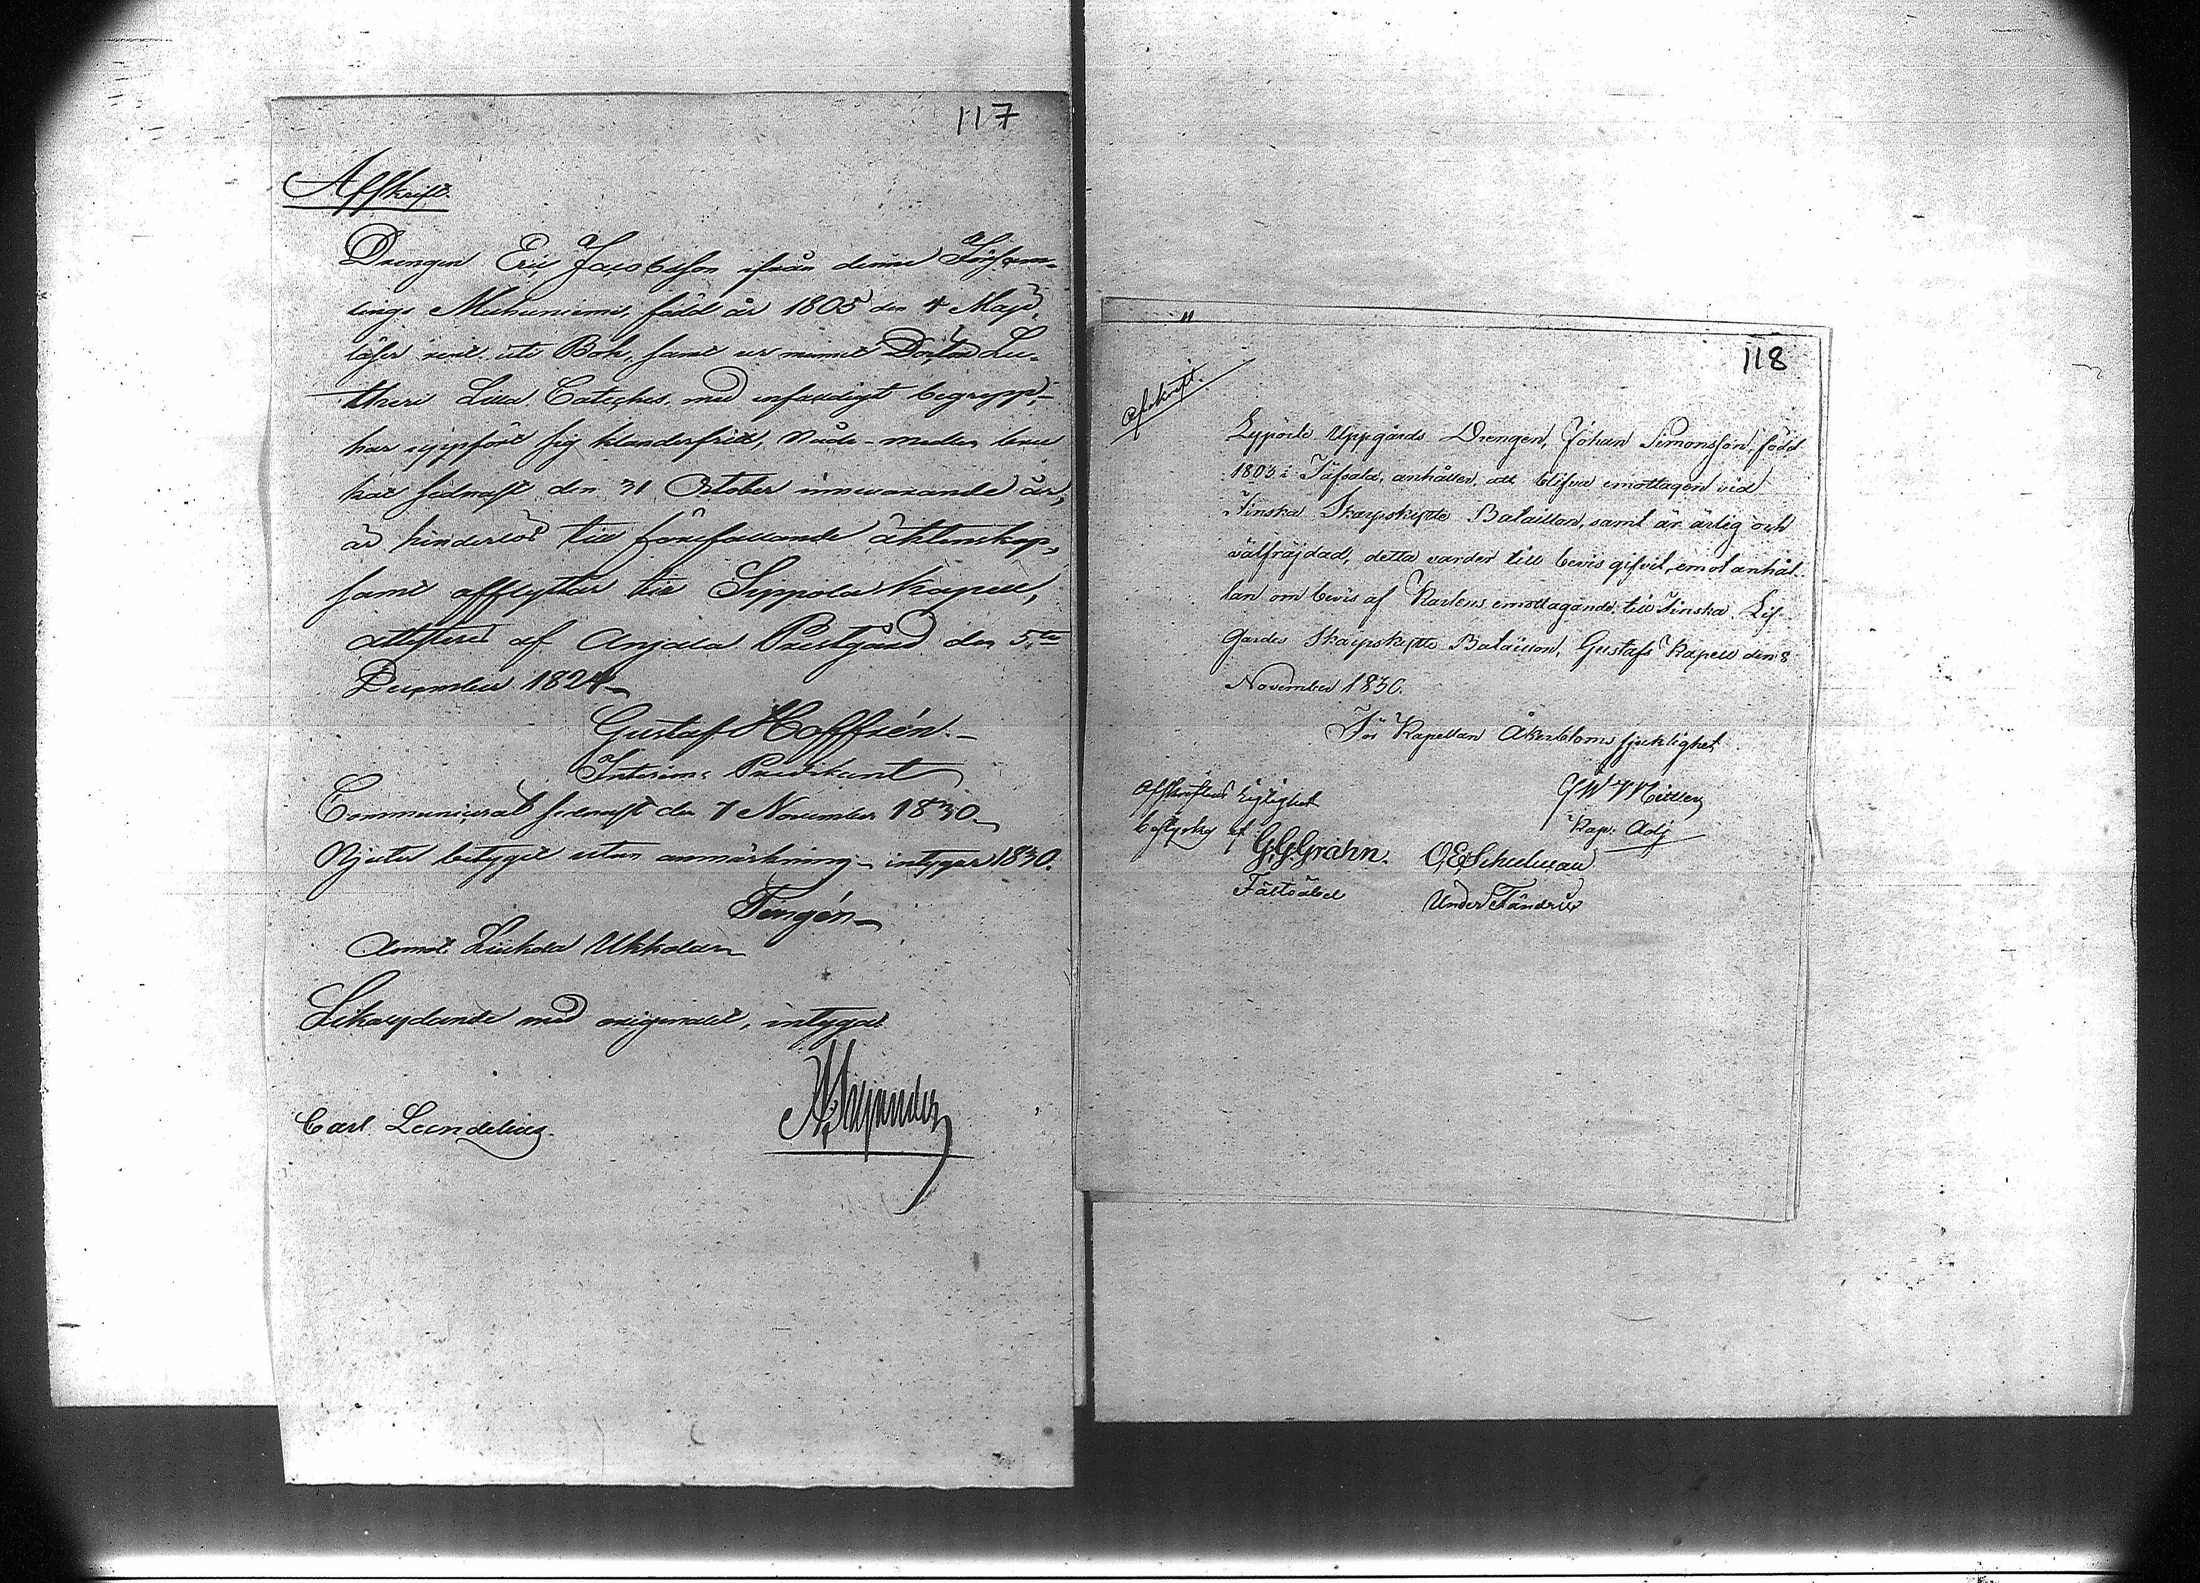 117
Afskrift.
Drengen Eric Jacobsson ifrån denne Försam-
lings Muhuniemi, född år 1805 den 4 Maji,
läser rent uti Bok, samt ur minnet Doctor Lu-
theri Lilla Cateches, med enfaldigt begrepp,
har uppfört sig klanderfritt, Nåde-medlen bru-
kat sednast den 31 October innevarande år,
är hinderlös till förefallande äktenskap,
samt afflyttar till Sippola Kapell,
attesterad af Anjala Prestgård den 5te
December 1824
Gustaf Hoffrén.
Interims Predikant
Communicerat sednast den 7 November 1830
Njuter betyget utan anmärkning, intygar 1830.
Tengén
Likalydande med originalet, intygar
Carl Lundelius.
118
Afskrift.
Lypörtö Uppgårds Drengen, Johan Simonsson, född
1803 i Töfsala, anhåller att blifva emottagen vid
Finska Skarpskytte Bataillon, samt är ärlig och
välfräjdad, detta varder till bevis gifvit, emot anhål-
lan om bevis af Karlens emottagande till Finska Lif-
Gardes Skarpskytte Bataillon, Gustafs Kapell den 8
November 1830.
För Kapellan Åkerbloms sjuklighet
Afskriftens Rigtighet
Kap: Adj
bestyrka af
G.G.Grahn.
Fältväbel
Under Fändrik